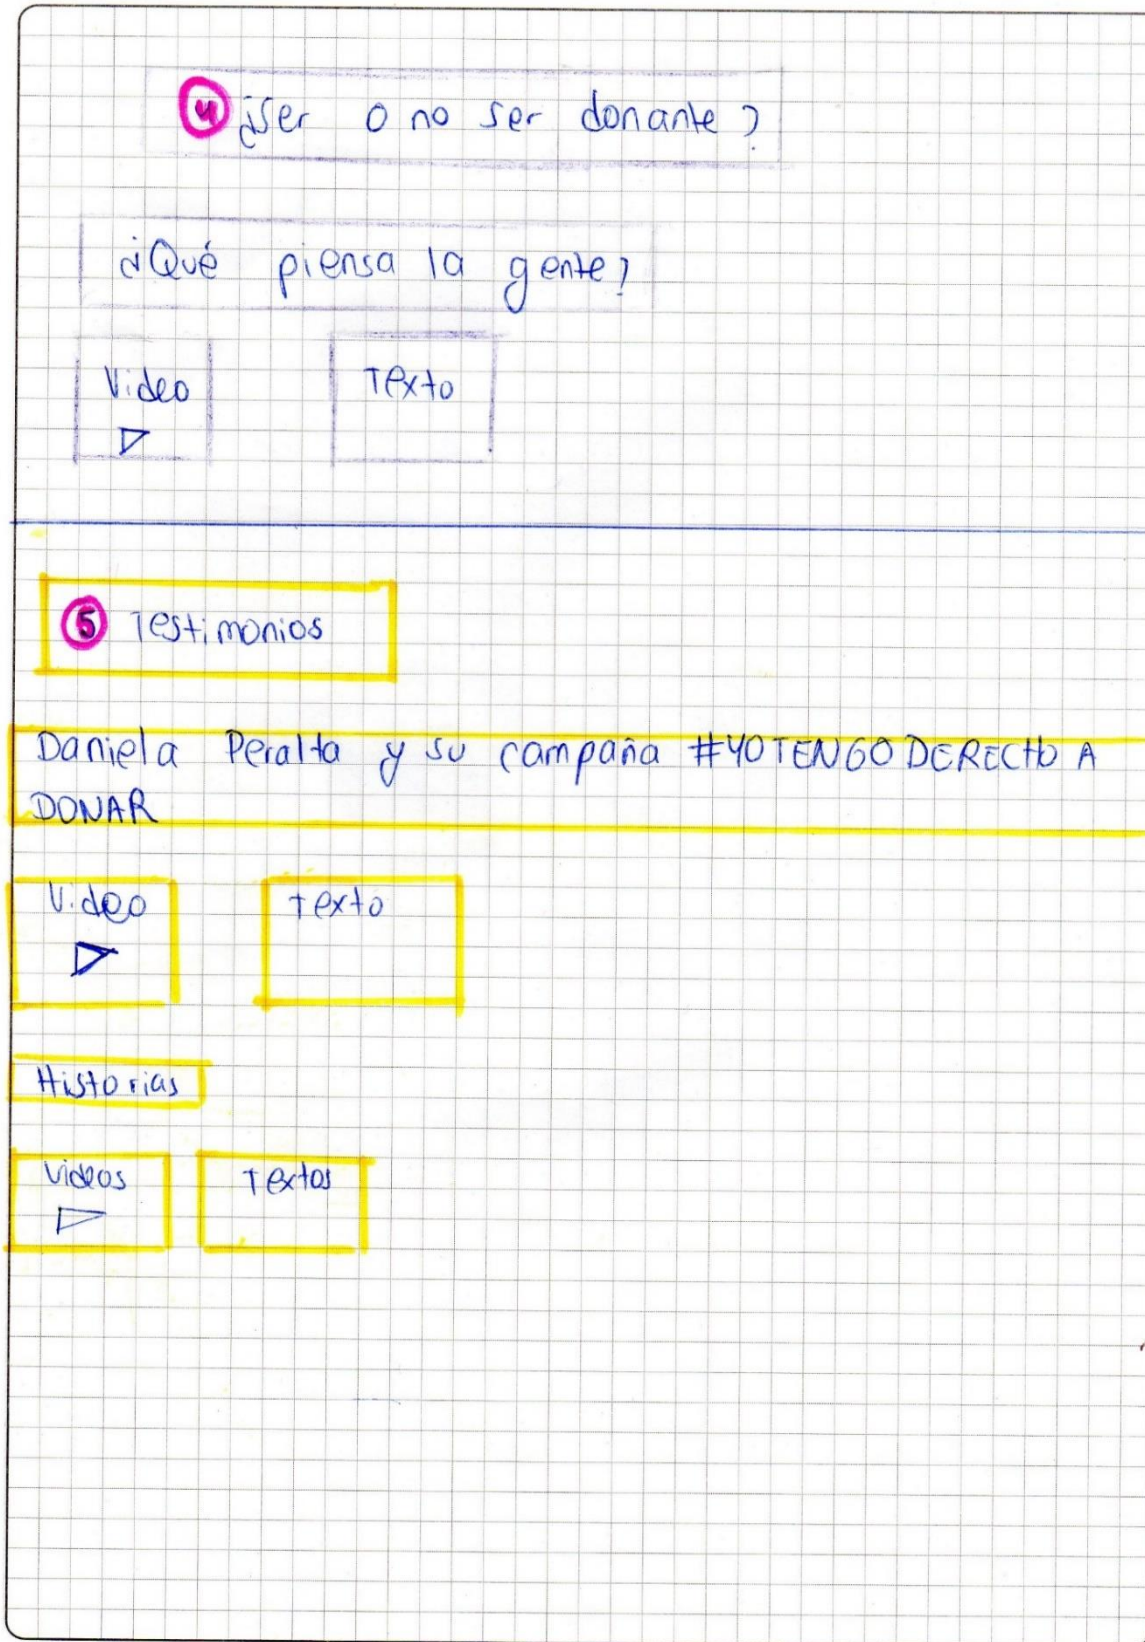 4 ¿Ser o no ser donante?
¿Qué piensa la gente?
Video Texto
5 Testimonios
Daniela Peralta y su campaña #YOTENGODERECHO A
DONAR
Video Texto
Historias
Videos Textos